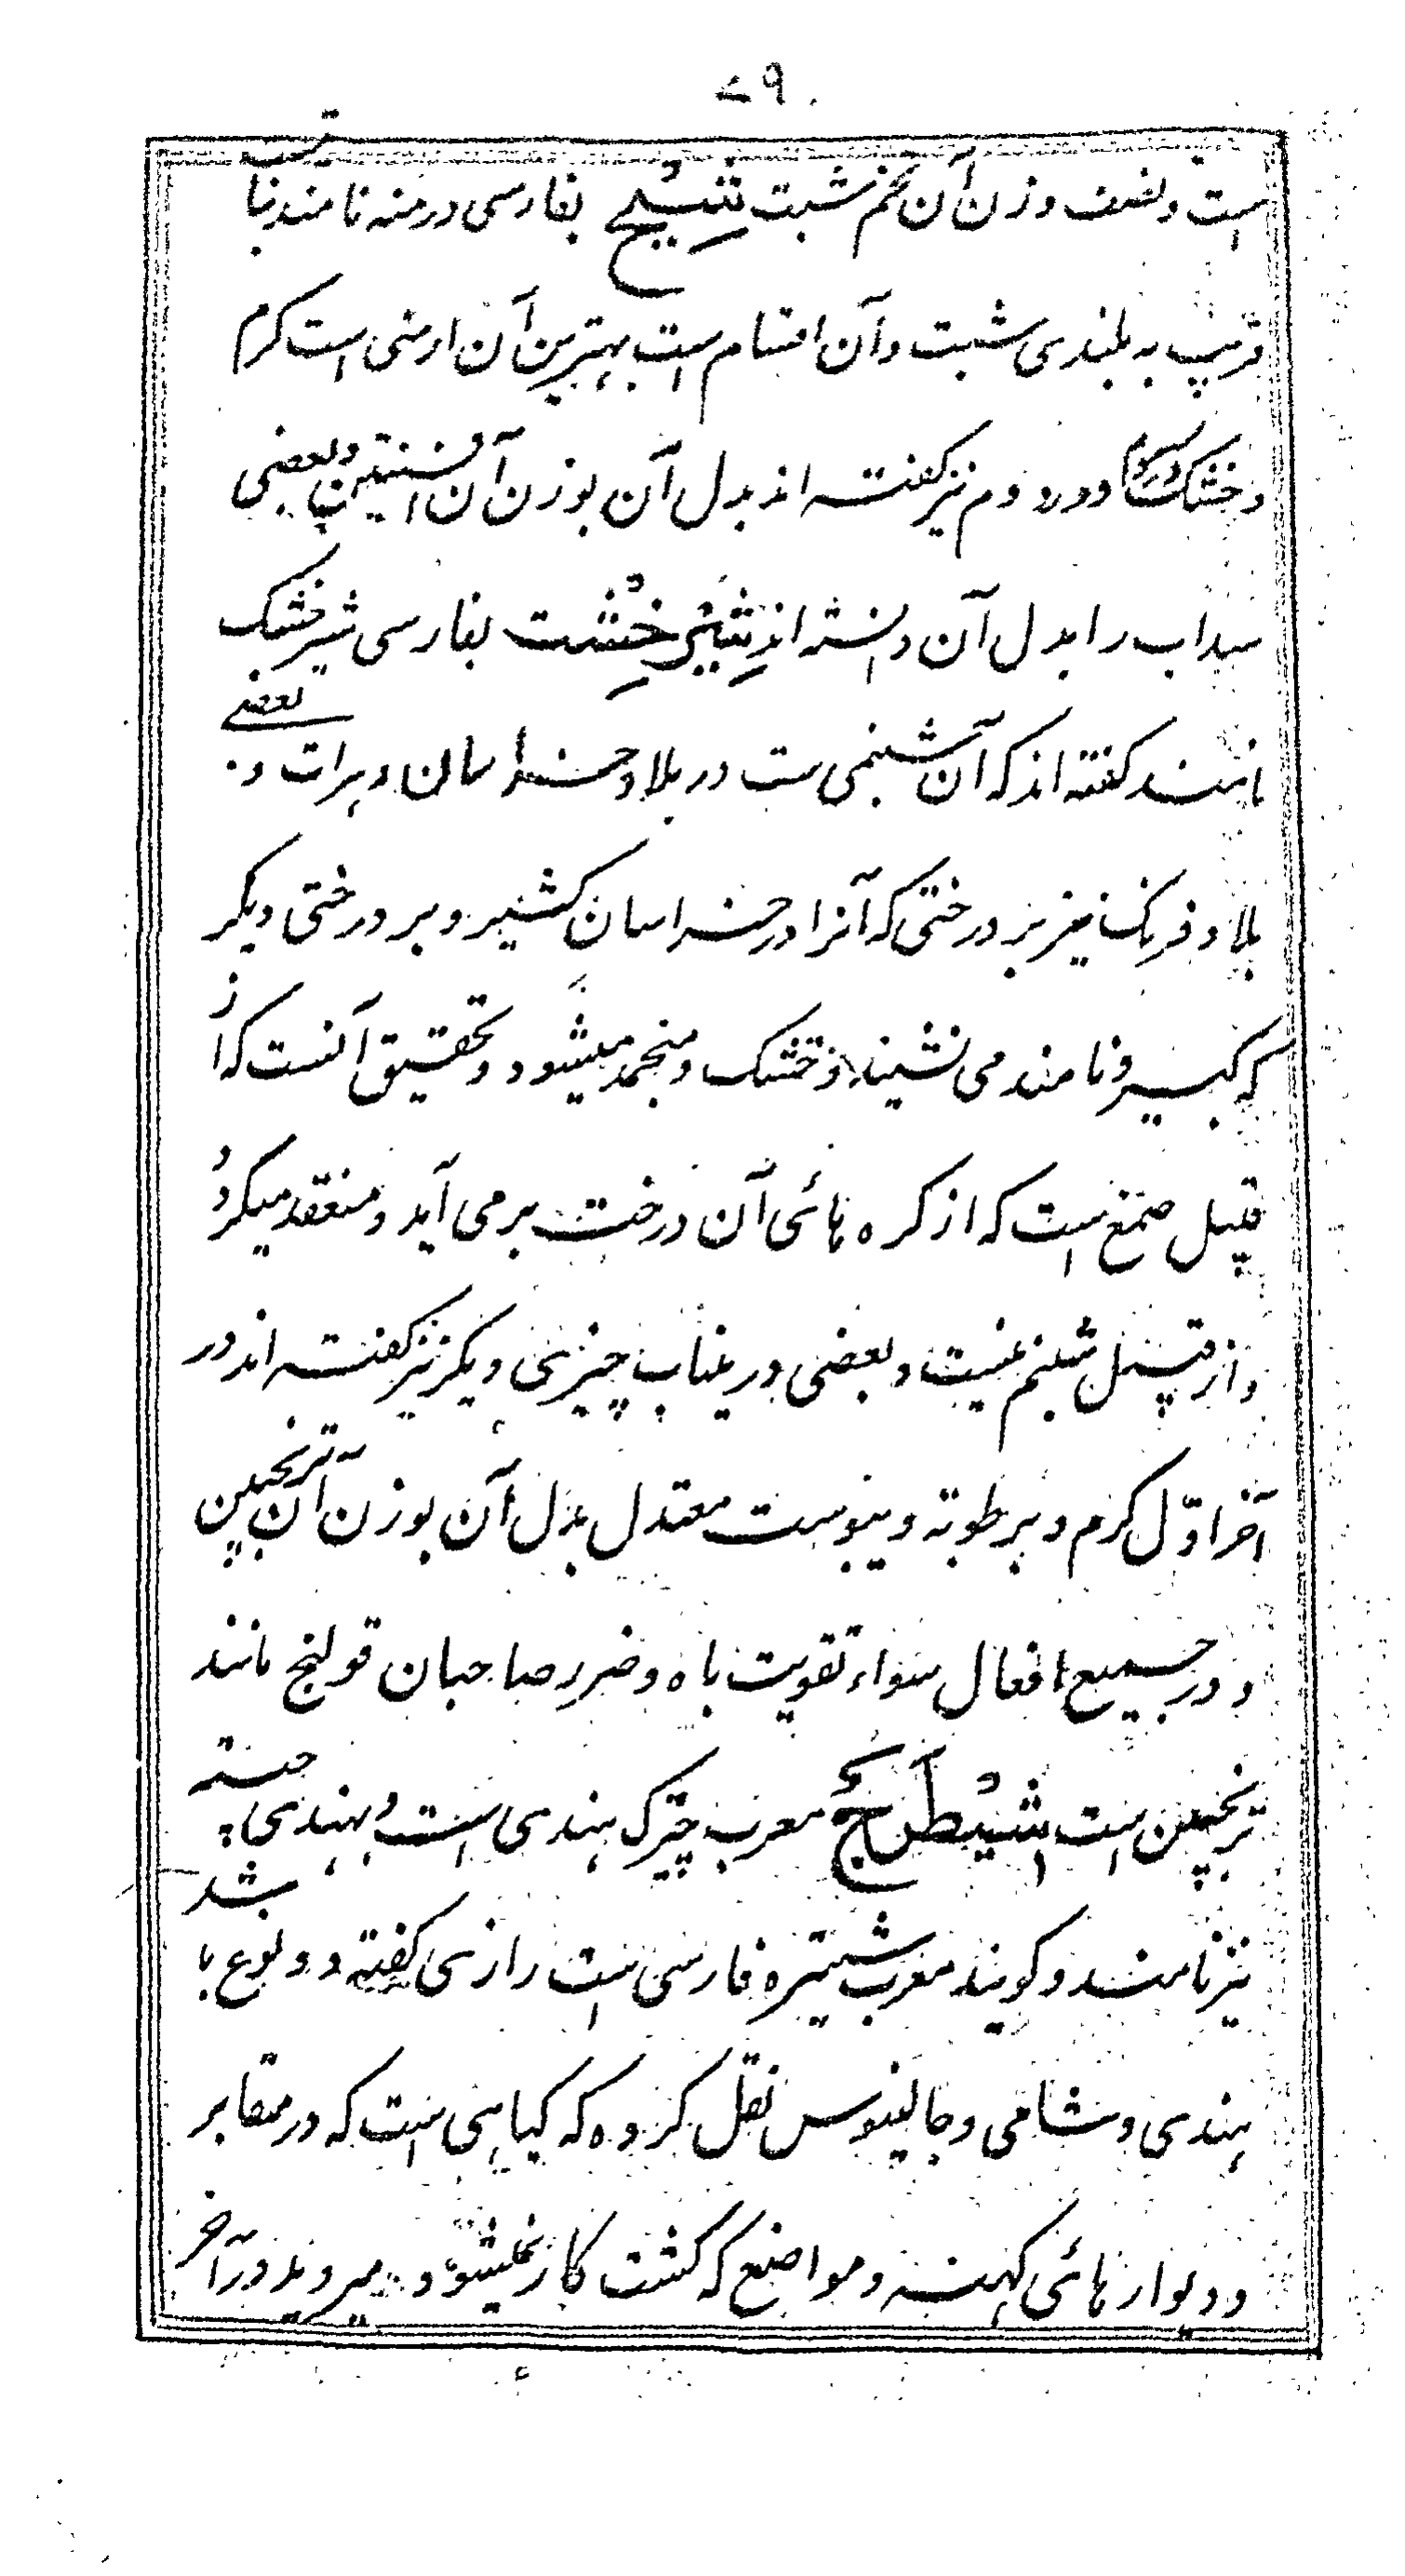 ٧٩
است و نصف وزن آن تخم شبت شیح بفارسی درمنه نامند نباتیست
قریب به بلندی شبت و آن اقسام است بهترین آن ارمنی است کرم
و خشک در سوم و در دوم نیز کفته اند بدل آن بوزن آن افسنتین و بعضی
سداب را بدل آن دانسته اند شیر خشت بفارسی شیر خشک
نامند کفته اند که آن شبنمی ست در بلاد خراسان و هرات و بعضی
بلاد فرنک نیز بر درختی که آنرا در خراسان کشیر و بر درختی دیکر
که کبیرو نامند می نشیند و خشک و منجمد میشود و تحقیق آنست که از
قبیل صمغ است که از کره هائی آن درخت بر می آید و منعقد میکردد
و از قبیل شبنم نیست و بعضی در ینباب چیزی دیکر نیز کفته اند در
آخر اوّل کرم و برطوبة و یبوست معتدل بدل آن بوزن آن ترنجبین
و در جمیع افعال سواء تقویت باه و ضرر صاحبان قولنج مانند
ترنجبین است شیطرج معرب چترک هندی است و بهندی چته
نیز نامند و کویند معرب شیتره فارسی است رازی کفته دو نوع باشد
هندی و شامی و جالینوس نقل کرده که کیاهی است که در مقابر
و دیوار هائی کهنه و مواضع که کشت کار نمیشود میروید در آخر